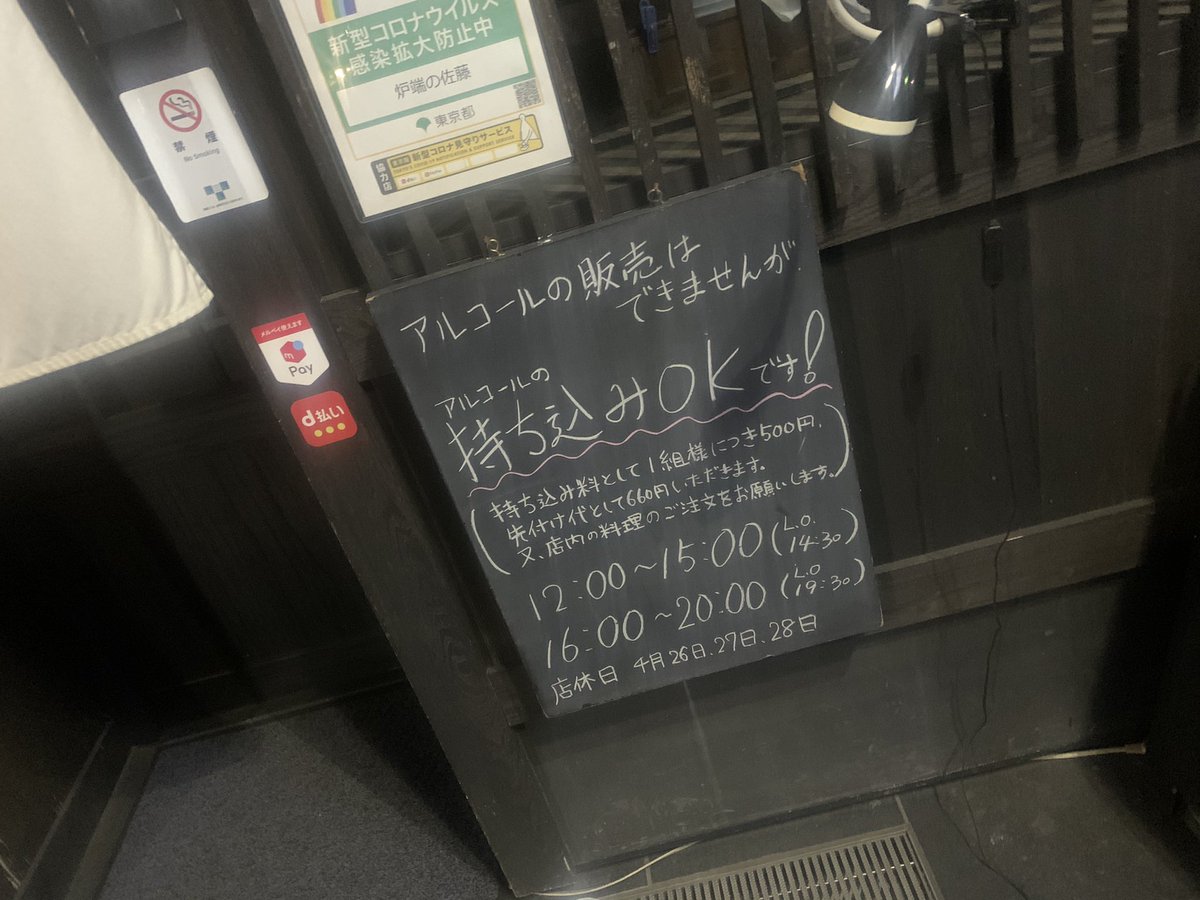 新型コロナウイルス
感染拡大防止中
炉端の佐藤
東京都
協力店
新型コロナ見守りサービス
禁煙
No Smoking
メルペイ使えます
Pay
d払い
アルコールの販売は
できませんが、
アルコールの
持ち込みOKです!
(持ち込み料として1組様につき500円、
先付け代として660円いただきます。
又、店内の料理のご注文をお願いします。)
12:00~15:00(L.O. 14:30)
16:00~20:00(L.O 19:30)
店休日 4月26日、27日、28日